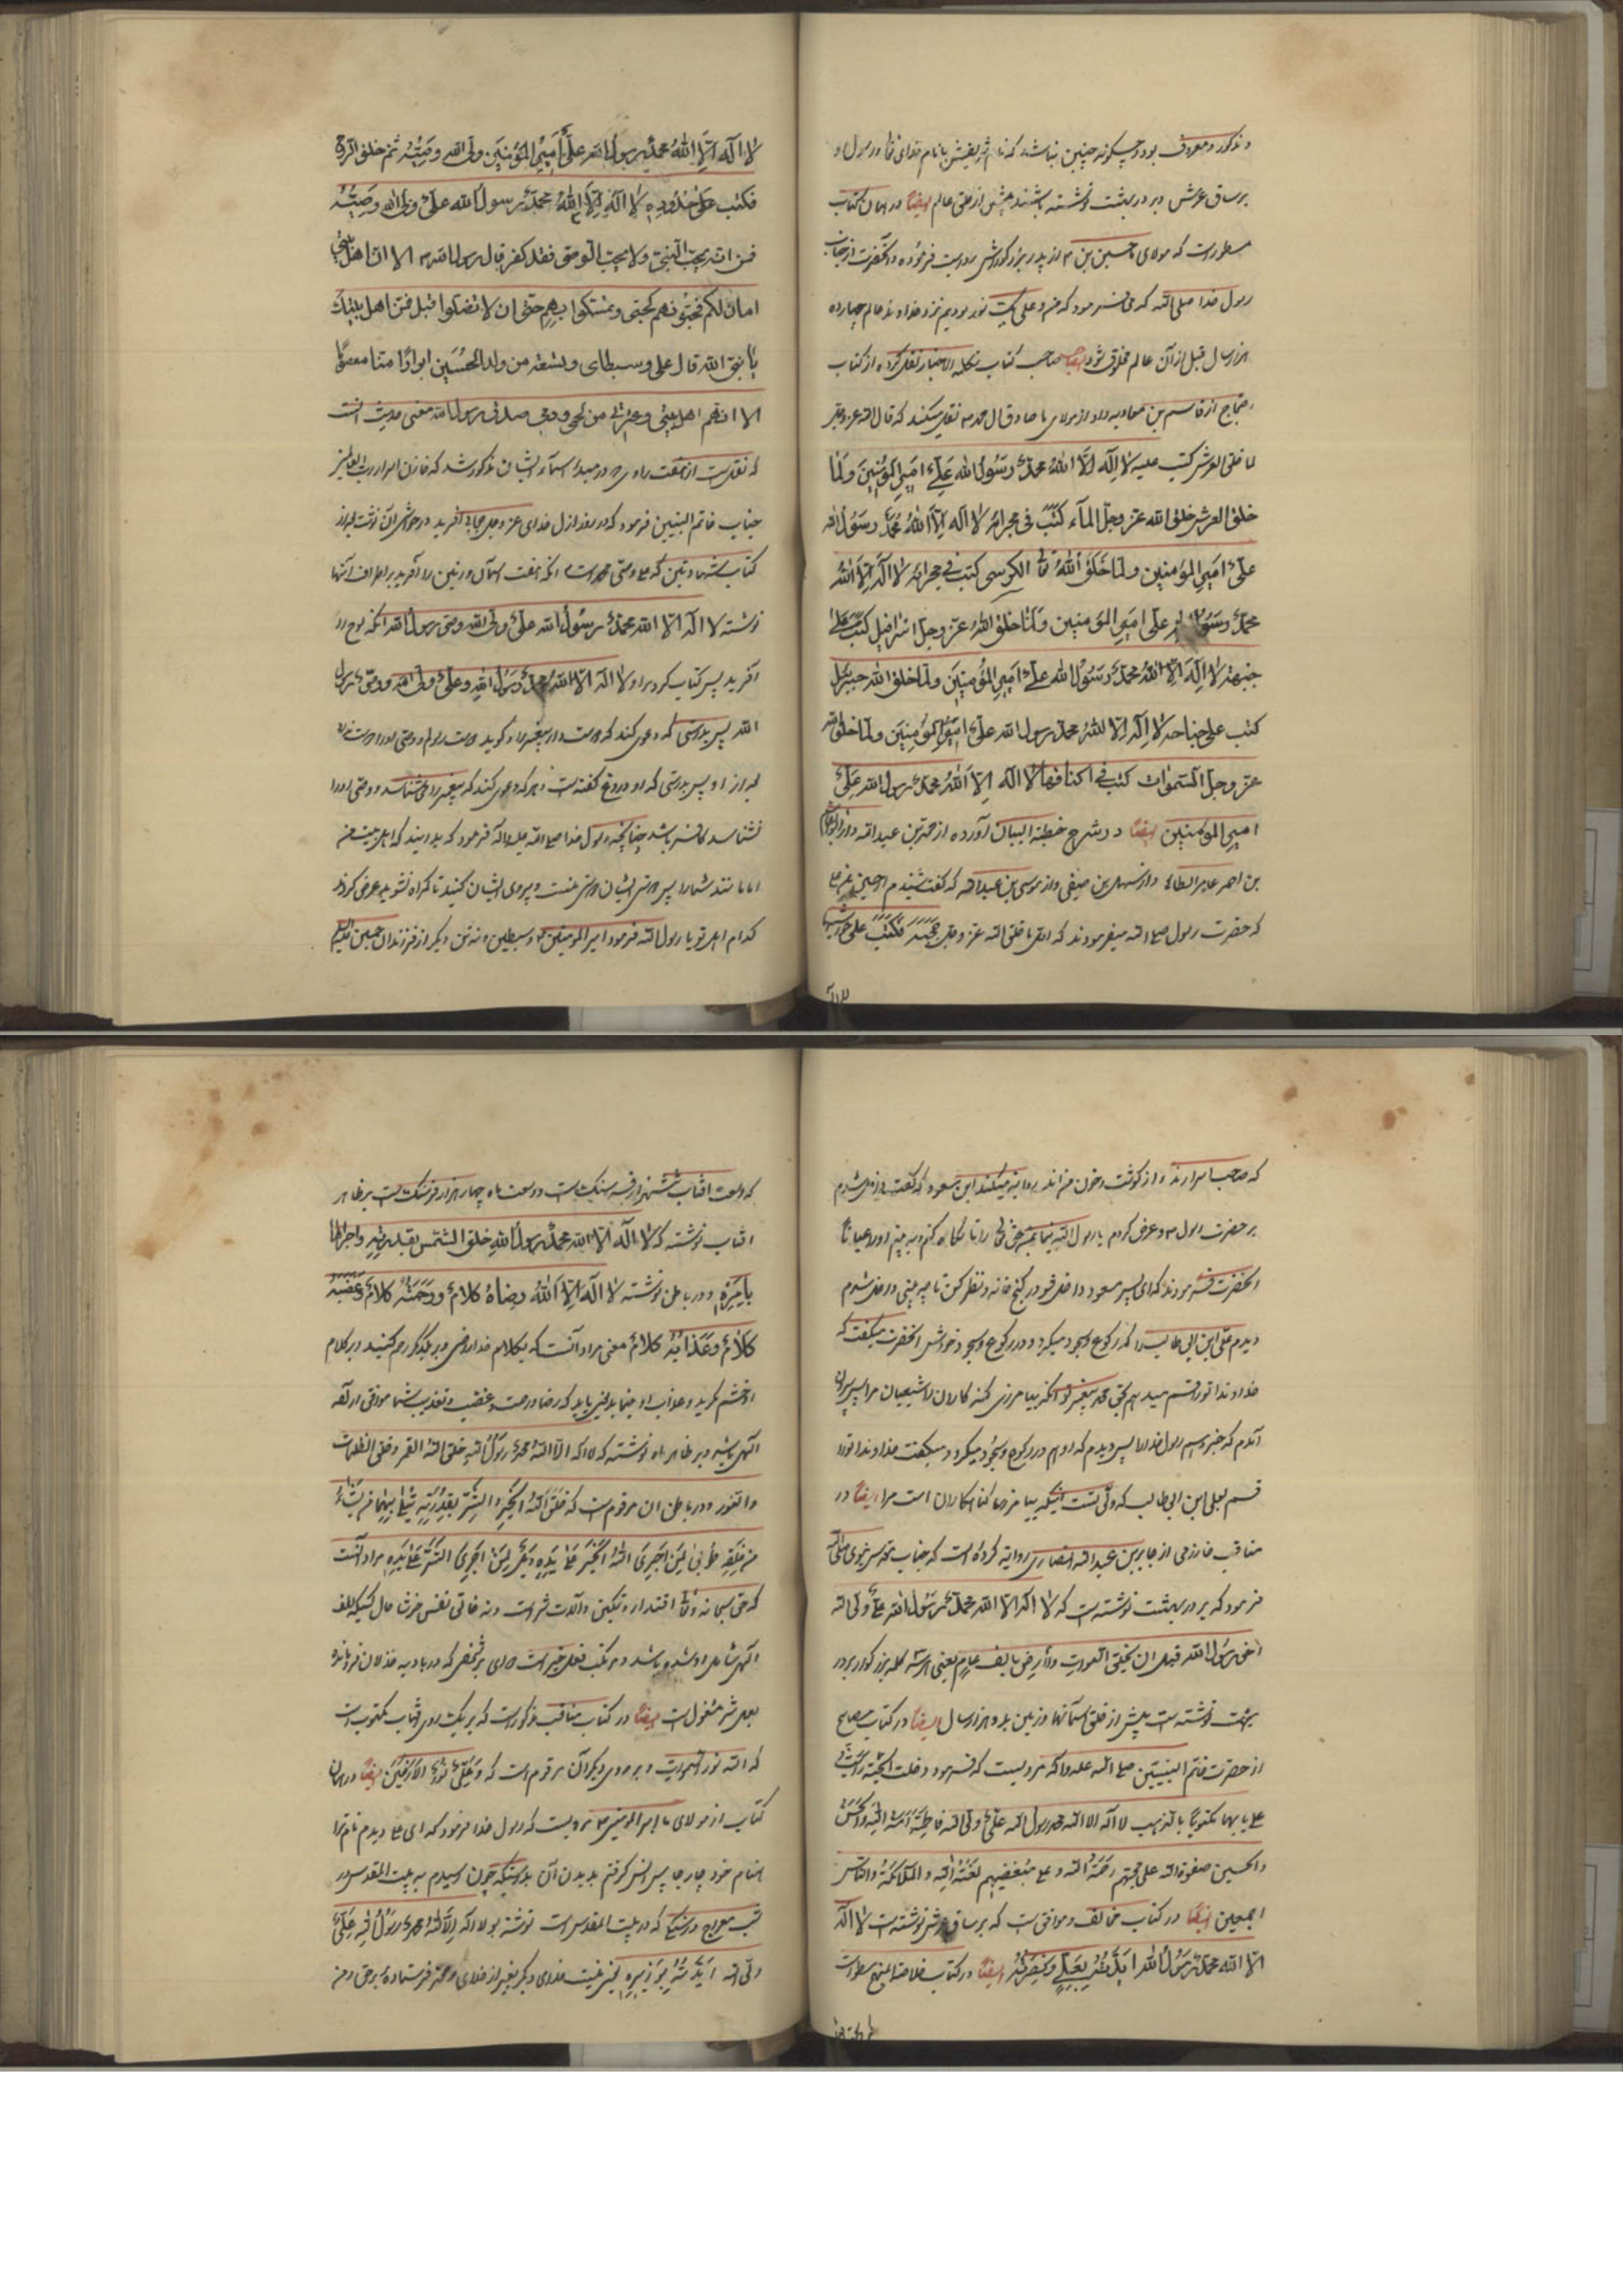 و مذکور و معروف بود و چکونه چنین نباشد که نام شریفش با نام خدای تعا و رسول او
بر ساق عرش و بر در بهشت نوشته باشند پیش از خلق عالم ایضا در همان کتاب
مسطور است که مولای حسین بن از پدر بزرکوارش روایت فرموده و آنحضرت از جناب
رسول خدا صلی الله که می فرمود که من و علی یک نور بودیم نزد خداوند عالم چهارده
هزار سال قبل از آن عالم مخلوق شود ایضا صاحب کتاب الاخبار نقل کرده از کتاب
احتجاج از قاسم بن معاویه و او از مولای ما صادق نقل میکند که قال الله عز و جل
لما خلق العرش کتب علیه لا اله الا الله محمد رسول الله علی امیر المؤمنین ولما
خلق العرش خلق الله عز وجل المآء کتب فی مجراه لا اله الا الله محمد رسول الله
علی امیر المؤمنین ولما خلق الله الکرسی کتب فی مجرائه لا اله الا الله
محمد رسول الله علی امیر المؤمنین ولما خلق الله عز وجل اسرافیل کتب علی
جبهته لا اله الا الله محمد رسول الله علی امیر المؤمنین ولما خلق الله جبرئیل
کتب علی جناحه لا اله الا الله محمد رسول الله علی امیر المؤمنین ولما خلق الله
عز وجل السموات کتب فی اکنافها لا اله الا الله محمد رسول الله علی
امیر المؤمنین ایضا در شرح خطبة البیان آورده از بن عبد الله و از
بن احمد عامر الطائی و از سهل بن و از موسی بن عبد الله که گفت شنیدم از حسین بن علی
که حضرت رسول صلی الله میفرمودند که خلق الله عز و جل فکتب علی
لا اله
لا اله الا الله محمد رسول الله علی امیر المؤمنین ولی الله و وصیه ثم خلق
فکتب علی حدوده لا اله الا الله محمد رسول الله علی ولی الله وصیه
فمن انه یحب النبی ولا یحب الوصی فقد کفر قال رسول الله الا ان اهل بیتی
امان لکم فحبوهم کحبی وتمسکوا بهم حتی ان لا تضلوا قبل فمن اهل بیتک
یا نبی الله قال علی وسبطای وتسعة من ولد الحسین ابرارا منا معصوما
الا انهم اهل بیتی وعترتی من لحمی ودمی صدق رسول الله معنی حدیث آنست
که نقل است از راوی در مبدء اسماء ایشان مذکور شد که خازن اسرار رب العالمین
جناب خاتم النبیین فرمود که در روز ازل خدای عز و جل آفرید در حواشی آن نوشت
کتاب که وصی محمد است انکه هفت آسمان و زمین را آفرید بر اطراف آنها
نوشته لا اله الا الله محمد رسول الله علی ولی الله وصی رسول الله انکه لوح را
آفرید پس کتابت کرد بر او لا اله الا الله محمد رسول الله وعلی ولی الله ووصی رسول
الله پس بدرستی که دعوی کند که دوست دارد پیغمبر را و کوید دوست رسولم و وصی او را دوست ندارد
بعد از او پس بدرستی که او دروغ گفته است و هر که دعوی کند که پیغمبر را می شناسد و وصی او را
نشناسد کافر باشد چنانچه رسول خدا صلی الله علیه و اله فرمود که بدانید که اهل بیت من
امانند شما را پس دوستی ایشان دوستی منست و پیروی ایشان کنید تا کمراه نشوید عرض کردند
کدام اهل تو یا رسول الله فرمود امیر المؤمنین و سبطین و نه تن دیکر از فرزندان حسین
که صاحب اسرارند و از کوشت و خون من اند روایت میکند ابن مسعود که گفت روزی شدم
بر حضرت رسول و عرض کردم یا رسول الله بمن حق را تا نکاه کنم و به بینم او را عیانا
آنحضرت فرمودند که ای پسر مسعود داخل شو در کنج خانه و نظر کن تا چه بینی داخل شدم
دیدم علی ابن ابی طالب را که رکوع و سجود میکرد و در رکوع و سجود و خشوعش آنحضرت میکفت که
خداوندا تو را قسم میدهم بحق محمد پیغمبر تو انکه بیامرزی کنه کاران را شیعیان مرا پس بیرون
آمدم که خبر دهم رسول خدا را پس دیدم که او هم در رکوع و سجود میکرد و میکفت خداوندا تو را
قسم بعلی ابن ابی طالب که ولی تست اینکه بیامرز کناهکاران امت مرا ایضا در
مناقب خارزمی از جابر بن عبد الله انصاری روایت کرده است که جناب مقدس نبوی صلی الله
فرمود که بر در بهشت نوشته است که لا اله الا الله محمد رسول الله علی ولی الله
اخی رسول الله قبل ان یخلق السموات والارض بالف عام یعنی این سه کلمه بزرکوار بر در
بهشت نوشته است پیش از خلق آسمانها و زمین بدو هزار سال ایضا در کتاب مصابیح
از حضرت خاتم النبیین صلی الله علیه و اله مرویست که فرمود دخلت الجنة رایت
علی بابها مکتوبا بالذهب لا اله الا الله محمد رسول الله علی ولی الله فاطمة امة الله والحسن
والحسین صفوة الله علی محبیهم رحمة الله وعلی مبغضیهم لعنة الله والملائکة والناس
اجمعین ایضا در کتاب مخالف و موافق است که بر ساق عرش نوشته است لا اله
الا الله محمد رسول الله ایدته بعلی ونصرته ایضا در کتاب خلاصة المنهج مسطور است
که وسعت افتاب ششهزار فرسنک است و وسعت ماه چهار هزار فرسنک است بر ظاهر
افتاب نوشته که لا اله الا الله محمد رسول الله خلق الشمس بقدرته واجراها
بامره و در باطن نوشته لا اله الا الله رضاه کلام ورحمته کلام وغضبه
کلام وعذابه کلام معنی مراد آنست که بکلام خدا راضی و بر یکدیکر رحم کنید و بر کلام
او خشم کرید و عذاب او چنا باید که رضا و رحمت و غضب و تعذیب شما موافق اراده
الهی باشد و بر ظاهر ماه نوشته که لا اله الا الله محمد رسول الله خلق الله القمر وخلق الظلمات
والنور و در باطن آن مرقوم است که خلق الله الخیر والشر بقدرته یبتلی بهما من یشاء
من خلقه طوبی لمن اجری الله الخیر علی یدیه وویل لمن اجری الشر علی یدیه مراد آنست
که حق سبحانه و تعا اقتدار و تمکین و آلات شر است و نه خالق نفس شر خوش حال کسیکه لطف
الهی شامل او شده باشد و مرتکب فعل خیر است وای بر شخصی که در بادیه خذلان فرومانده
بعمل شر مشغول است ایضا در کتاب مناقب مذکور است که بر یک روی افتاب مکتوب است
که الله نور السموات و بر روی دیکر آن مرقوم است که وعلی نور الارضین ایضا در همان
کتاب از مولای ما امیر المؤمنین مرویست که رسول خدا فرمود که ای علی دیدم نام ترا
با نام خود چهار جا پس انس کرفتم بدیدن آن بدرستیکه چون رسیدم به بیت المقدس در
شب معراج در سنکی که در بیت المقدس است نوشته بود لا اله الا الله محمد رسول الله علی
ولی الله ایدته بوزیره یعنی نیست خدای دیکر بغیر از خدای و محمد فرستاده برحق و من